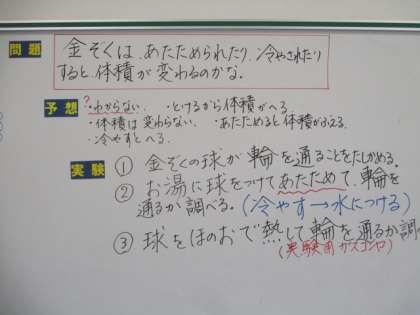 問題 金ぞくは、あたためられたり、冷やされたり
すると、体積が変わるのかな。
予想 ?・わからない。・とけるから体積がへる。
・体積は変わらない。・あたためると体積がふえる。
・冷やすとへる。
実験 ① 金ぞくの球が輪を通ることをたしかめる。
② お湯に球をつけてあたためて、輪を
通るか調べる。(冷やす→水につける)
③ 球をほのおで熱して輪を通るか調
(実験用ガスコンロ)